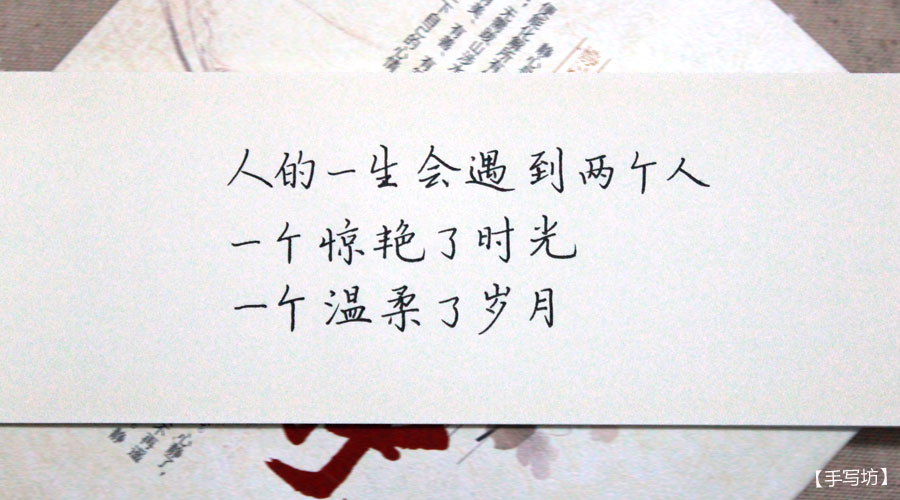 人的一生会遇到两个人
一个惊艳了时光
一个温柔了岁月
【手写坊】